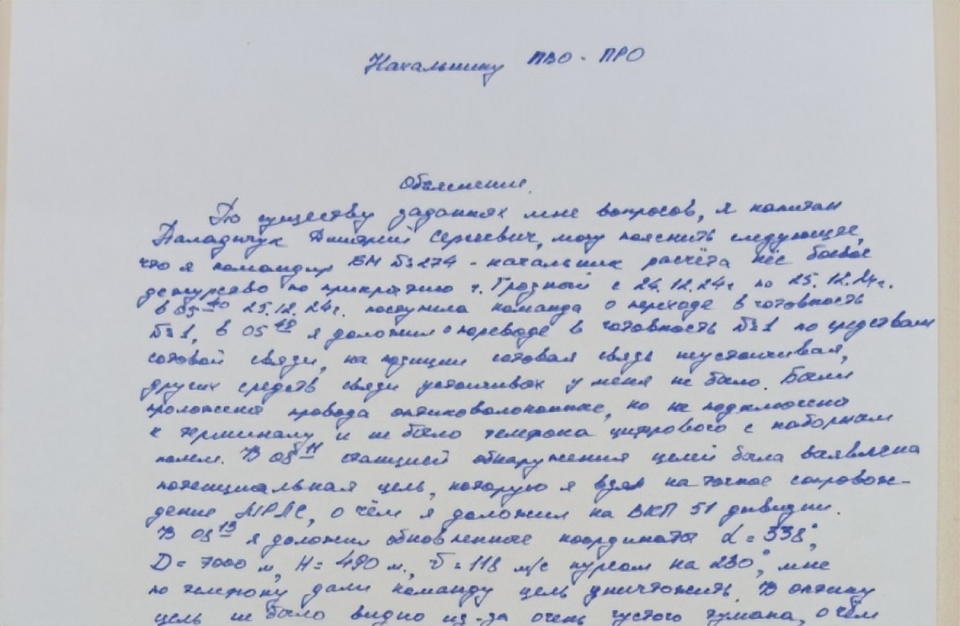 Начальнику ПВО - ПРО
Объяснение.
По существу заданных мне вопросов, я капитан
Паладичук Дмитрий Сергеевич, могу пояснить следующее,
что я командир БМ №3274 - начальник расчёта нёс боевое
дежурство по прикрытию г. Грозный с 24.12.24г по 25.12.24г.
в 05 40 25.12.24г. поступила команда о переходе в готовность
№1, в 05 48 я доложил о переводе в готовность №1 по средствам
сотовой связи, на позиции сотовая связь неустойчивая,
других средств связи устойчивых у меня не было. Были
проложены провода оптиковолоконные, но не подключены
к терминалу и не было телефона цифрового с наборным
полем. В 08 11 станцией обнаружения целей была выявлена
потенциальная цель, которую я взял на точное сопровож-
дение МРЛС, о чём я доложил на ВКП 51 дивизии.
В 08 13 я доложил обновленные координаты α = 338°,
D = 7000 м, H = 480 м, v = 118 м/с курсом на 230°, мне
по телефону дали команду цель уничтожить. В оптику
цель не было видно из-за очень густого тумана, о чём